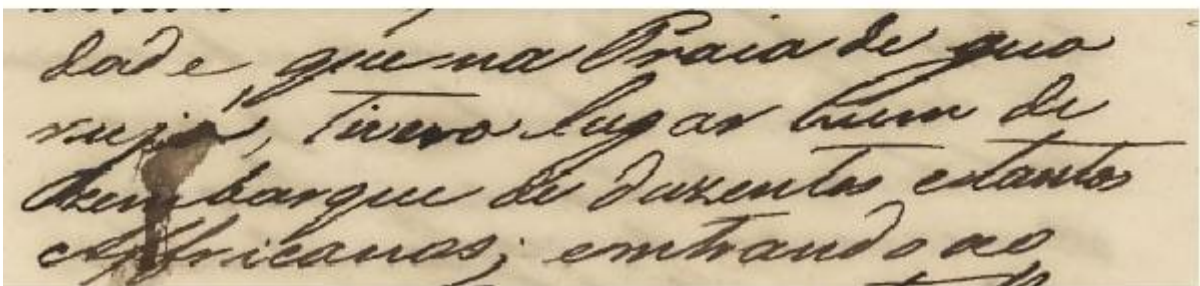 dade, que na Praia de gua
rujá, tivera lugar hum de
zembarque de duzentos etantos
Affricanos; emtrando ao